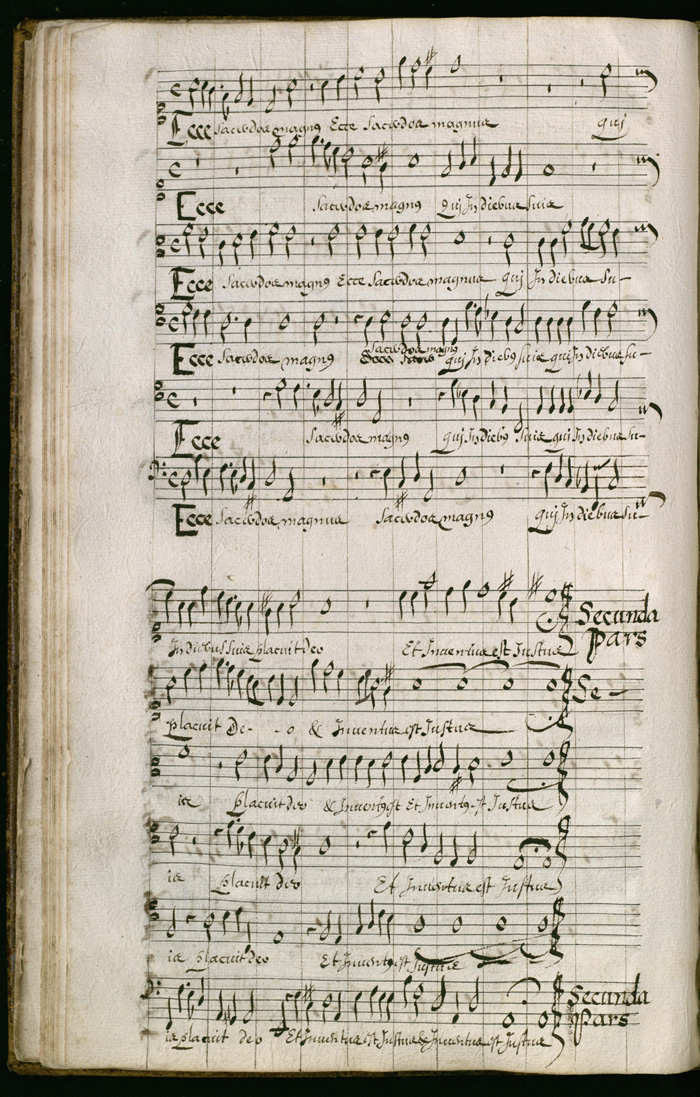 Ecce Sacerdos magng Ecce Sacerdos magnus quj
Ecce Sacerdos magng Quj In diebus Suis
Ecce Sacerdos magng Ecce Sacerdos magnus quj In diebus Su-
Ecce Sacerdos magng Sacerdos magng quj In diebg Suis quj In diebus Su-
Ecce Sacerdos magng quj In diebg Suis quj In diebus Su-
Ecce Sacerdos magnus Sacerdos magng quj In diebus Su-
In diebus Suis placuit deo Et Inventus est Justus Secunda Pars
placuit De- - o & Inventus est Justus Se-
is placuit deo & Inventg est Et Inventg est Justus
is placuit deo Et Inventus est Justus
is placuit deo Et Inventg est Justus
is placuit deo Et Inventus est Justus & Inventus est Justus Secunda Pars